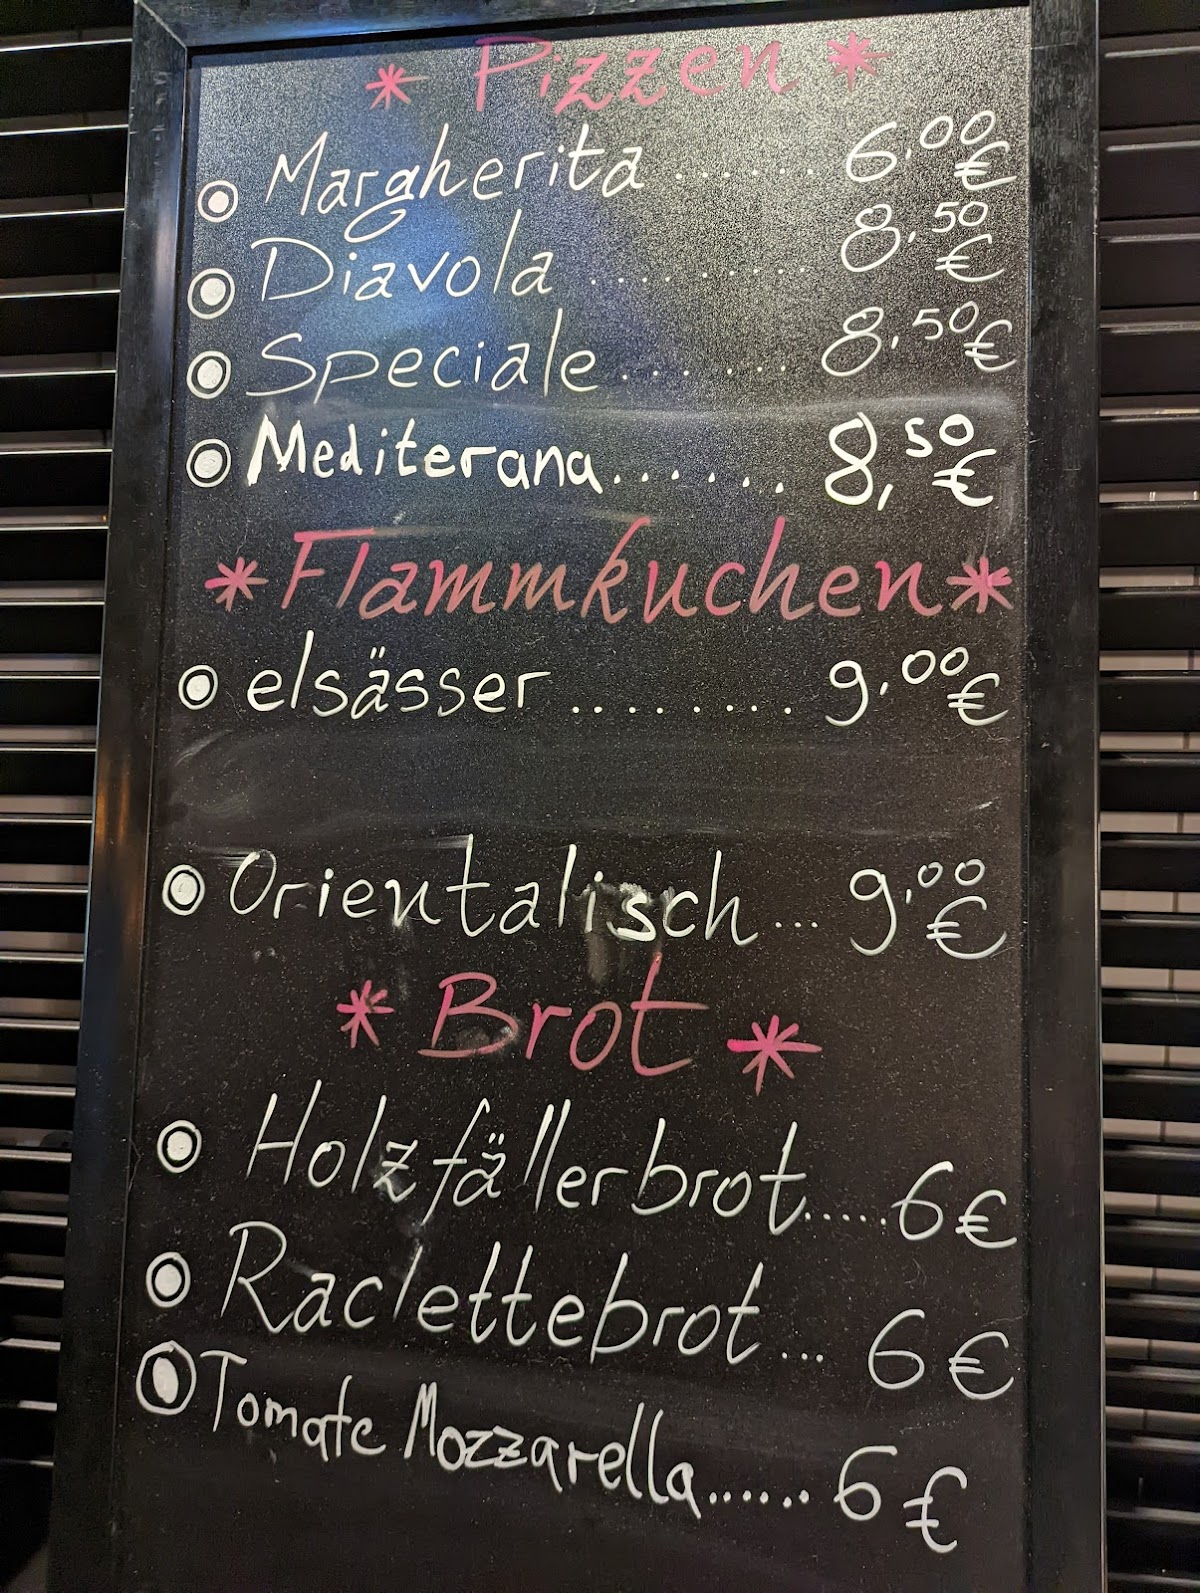 * Pizzen *
Margherita ....... 6,00 €
Diavola .......... 8,50 €
Speciale ....... 8,50 €
Mediterana....... 8,50 €
* Flammkuchen *
elsässer ......... 9,00 €
Orientalisch ... 9,00 €
* Brot *
Holzfällerbrot..... 6 €
Raclettebrot ... 6 €
Tomate Mozzarella...... 6 €